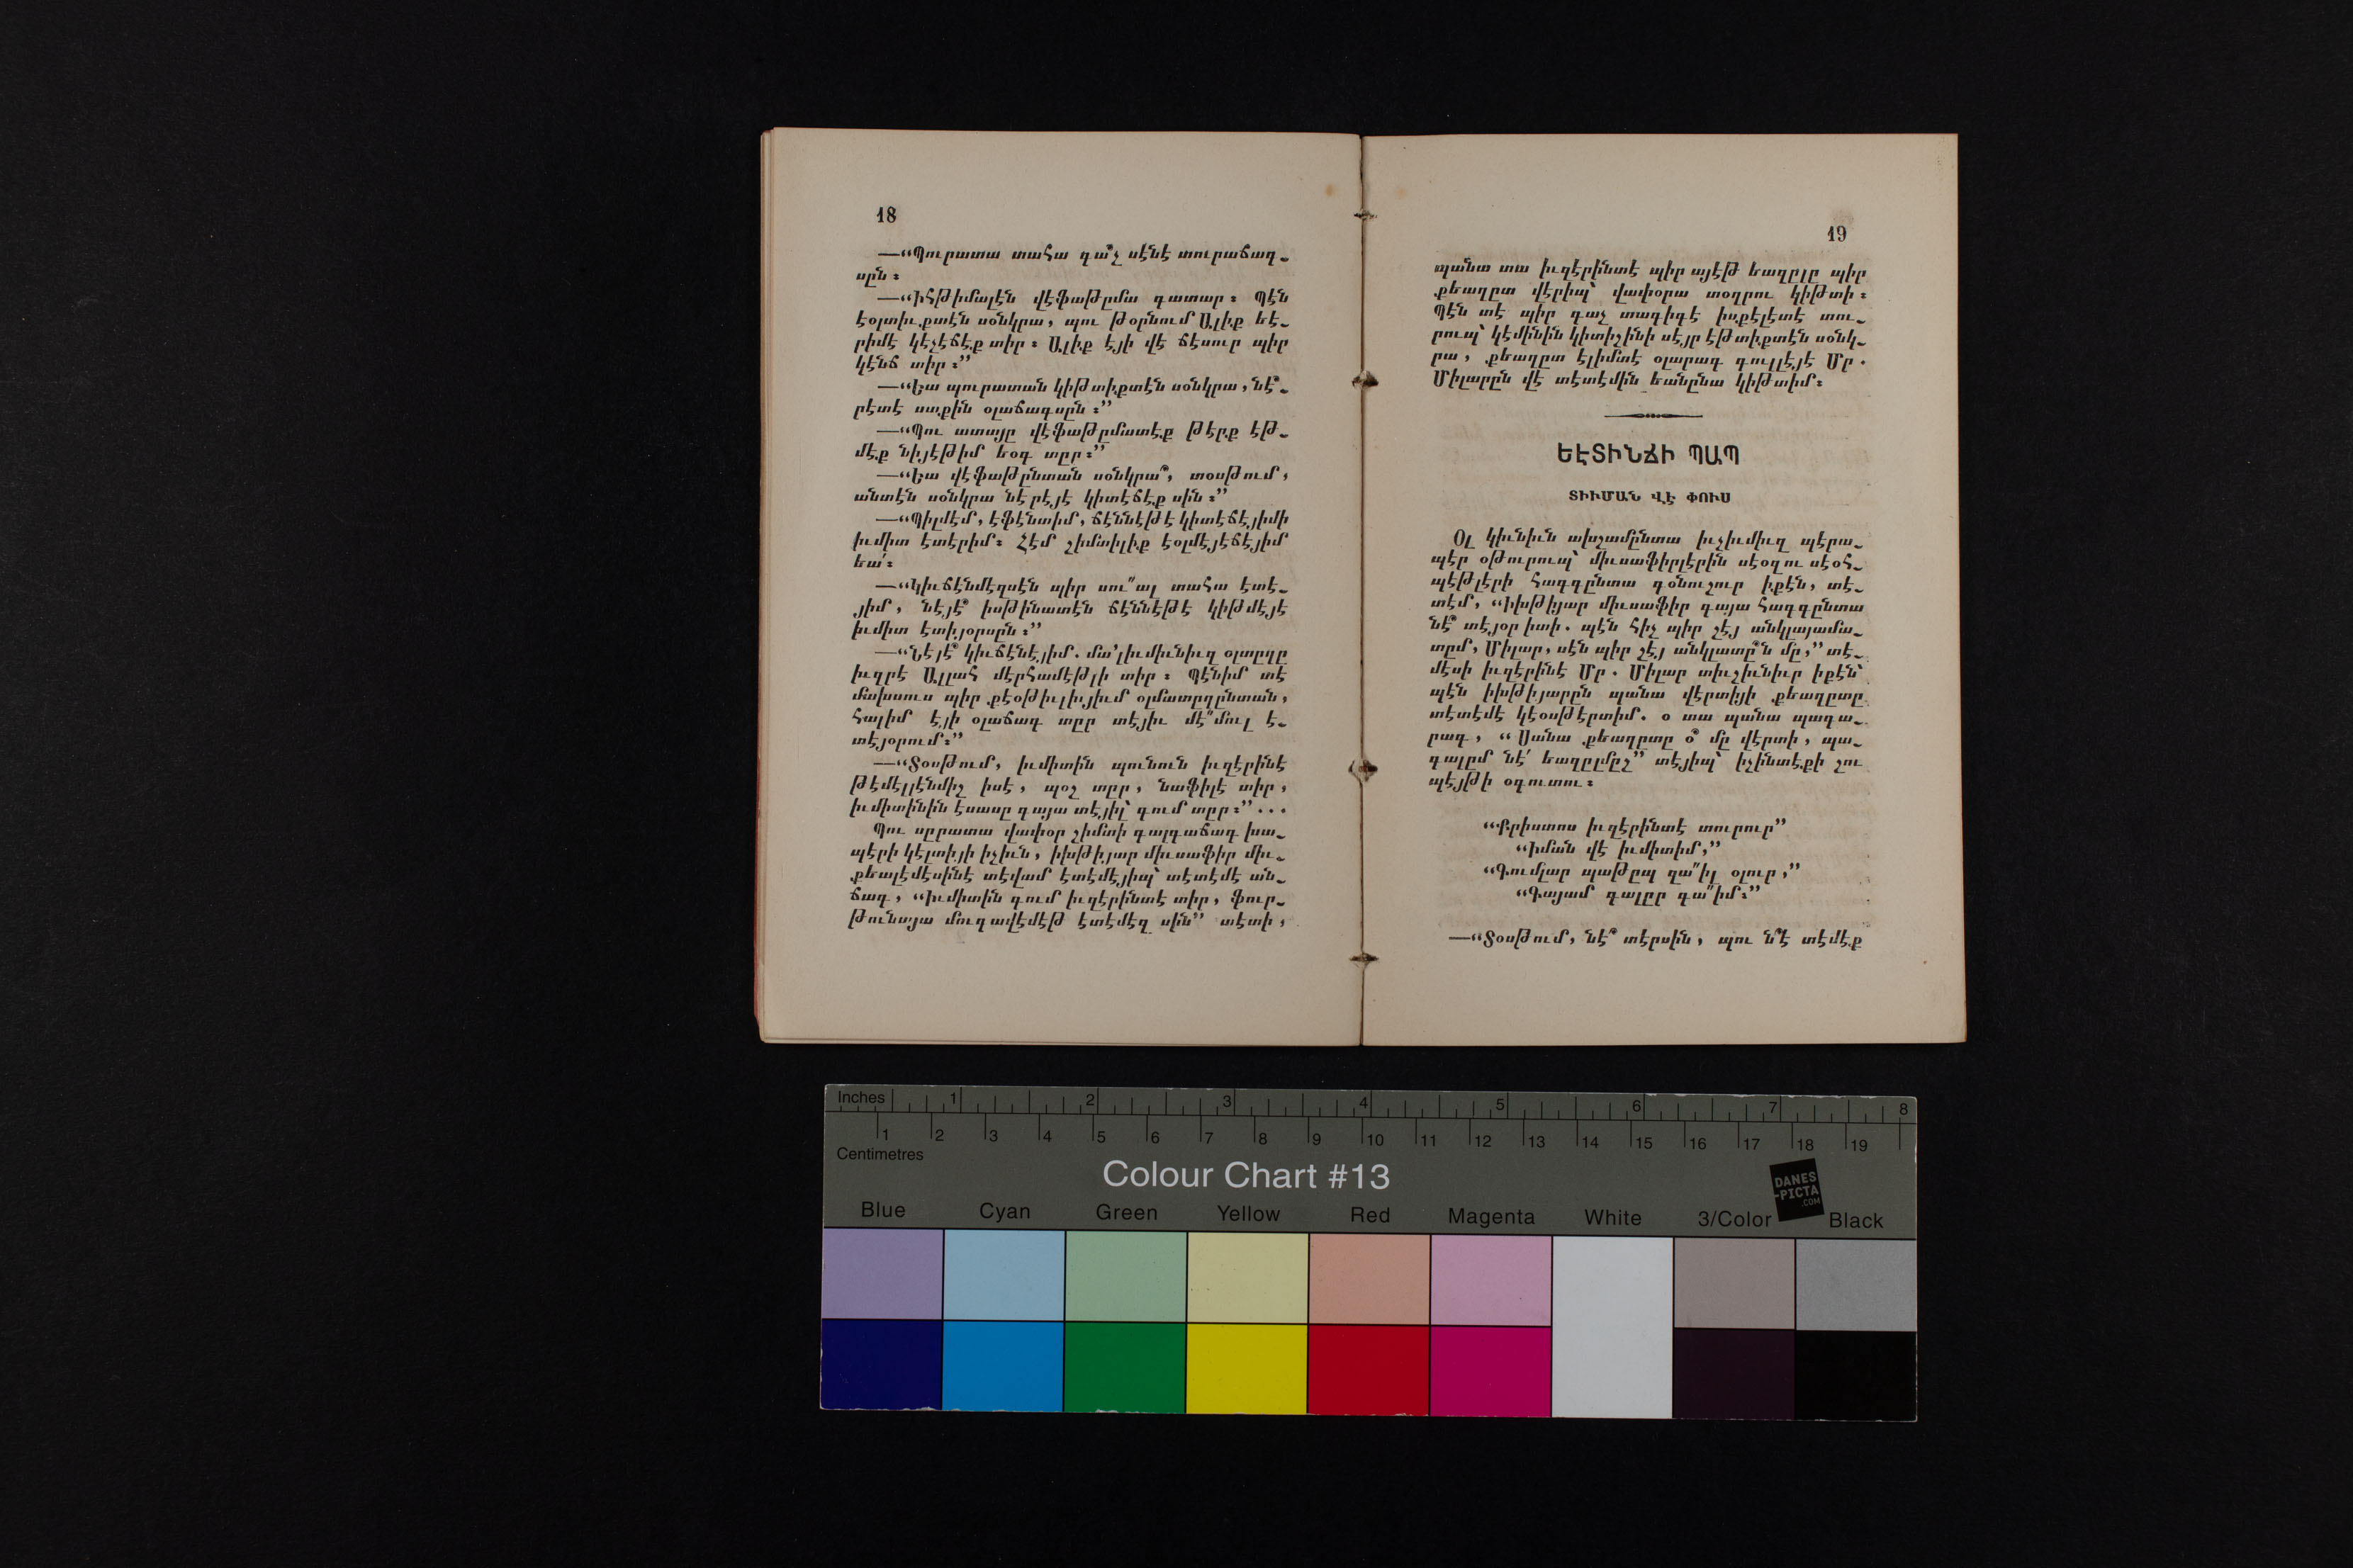 18
—“Պուրատա տահա ղա՞չ սէնէ տուրաճաղ-
սըն։
—“Իհթիմալէն վէֆաթըմա գատար։ Պէն
էօլտիւքտէն սօնկրա, պու թօրնում Ալիք եէ-
րիմէ կէչէճէք տիր։ Ալիք էյի վէ ճէսուր պիր
կէնճ տիր։”
—“Եա պուրատան կիթտիքտէն սօնկրա, նէ՞-
րէտէ սաքին օլաճագսըն։”
—“Պու ատայը վէֆաթըմատէք թէրք էթ-
մէք նիյէթիմ եօգ տըր։”
—“Եա վէֆաթընտան սօնկրա՞, տօսթում,
անտէն սօնկրա նէրէյէ կիտէճէք սին։”
—“Պիլմէմ, էֆէնտիմ, ճէննէթէ կիտէճէյիմի
իւմիտ էտէրիմ։ Հէմ շիմտիլիք էօլմէյէճէյիմ
եա՛։
—“Կիւճէնմէզսէն պիր սու՚՚ալ տահա էտէ-
յիմ, նէյէ՞ իսթինատէն ճէննէթէ կիթմէյէ
իւմիտ էտիյօրսըն։”
—“Նէյէ՞ կիւճէնէյիմ. մա՚լիւմիւնիւզ օլաըղը
իւզրէ Ալլահ մէրհամէթլի տիր։ Պէնիմ տէ
մախսուս պիր քէօթիւլիւյիւմ օլմատըղընտան,
հալիմ էյի օլաճագ տըր տէյիւ մէ՚՚մուլ է-
տէյօրում։”
—“Տօսթում, իւմիտին պունուն իւզէրինէ
թէմէլլէնմիշ իսէ, պօշ տըր, նաֆիլէ տիր,
իւմիտինին էսասը ղայա տէյիլ՝ գում տըր։”...
Պու սըրատա վափօր շիմտի գալգաճագ խա-
պէրի կէլտիյի իչիւն, իխթիյար միւսաֆիր միւ-
քեալէմէսինէ տէվամ էտէմէյիպ՝ տէտէմէ ան-
ճագ, “Իւմիտին գում իւզէրինտէ տիր, ֆուր-
թունայա մուգավէմէթ էտէմէզ սին” տէտի,
19
պանա տա իւզէրինտէ պիր այէթ եաղըլը պիր
քեաղըտ վէրիպ՝ վափօրա տօղրու կիթտի։
Պէն տէ պիր գաչ տագիգէ իսքէլէտէ տու-
րուպ՝ կէմինին կիտիշինի սէյր էթտիքտէն սօնկ-
րա, քեաղըտ էլիմտէ օլարագ գուլլէյէ Մր.
Միլարըն վէ տէտէմին եանընա կիթտիմ։
ԵԷՏԻՆՃԻ ՊԱՊ
ՏԻՒՄԱՆ ՎԷ ՓՈՒՍ
Օլ կիւնիւն ախշամընտա իւչիւմիւզ պէրա-
պէր օթուրուպ՝ միւսաֆիրլէրին սէօզու սէօհ-
պէթլէրի հագգընտա գօնուշուր իքէն, տէ-
տէմ, “Իխթիյար միւսաֆիր գայա հագգընտա
նէ՞ տէյօր իտի. պէն հիչ պիր շէյ անկլայամա-
տըմ, Միլար, սէն պիր շէյ անկլատը՞ն մը,” տէ-
մէսի իւզէրինէ Մր. Միլար տիւշիւնիւր իքէն՝
պէն իխթիյարըն պանա վէրտիյի քեաղըտը
տէտէմէ կէօսթէրտիմ. օ տա պանա պագա-
րագ, “Սանա քեաղըտը օ՞ մը վէրտի, պա-
գալըմ նէ՛ եաղըլմըշ” տէյիպ՝ իչինտէքի շու
պէյթի օգուտու։
“Քրիստոս իւզէրինտէ տուրուր”
“Իման վէ իւմիտիմ,”
“Գումլար պաթըպ զա՚՚իլ օլուր,”
“Գայամ գալըր գա՚՚իմ։”
—“Տօսթում, նէ՞ տէրսին, պու ն՞է տէմէք
Inches 1 2 3 4 5 6 7 8
1 2 3 4 5 6 7 8 9 10 11 12 13 14 15 16 17 18 19
Centimetres
Colour Chart #13
DANES
-PICTA
.COM
Blue Cyan Green Yellow Red Magenta White 3/Color Black